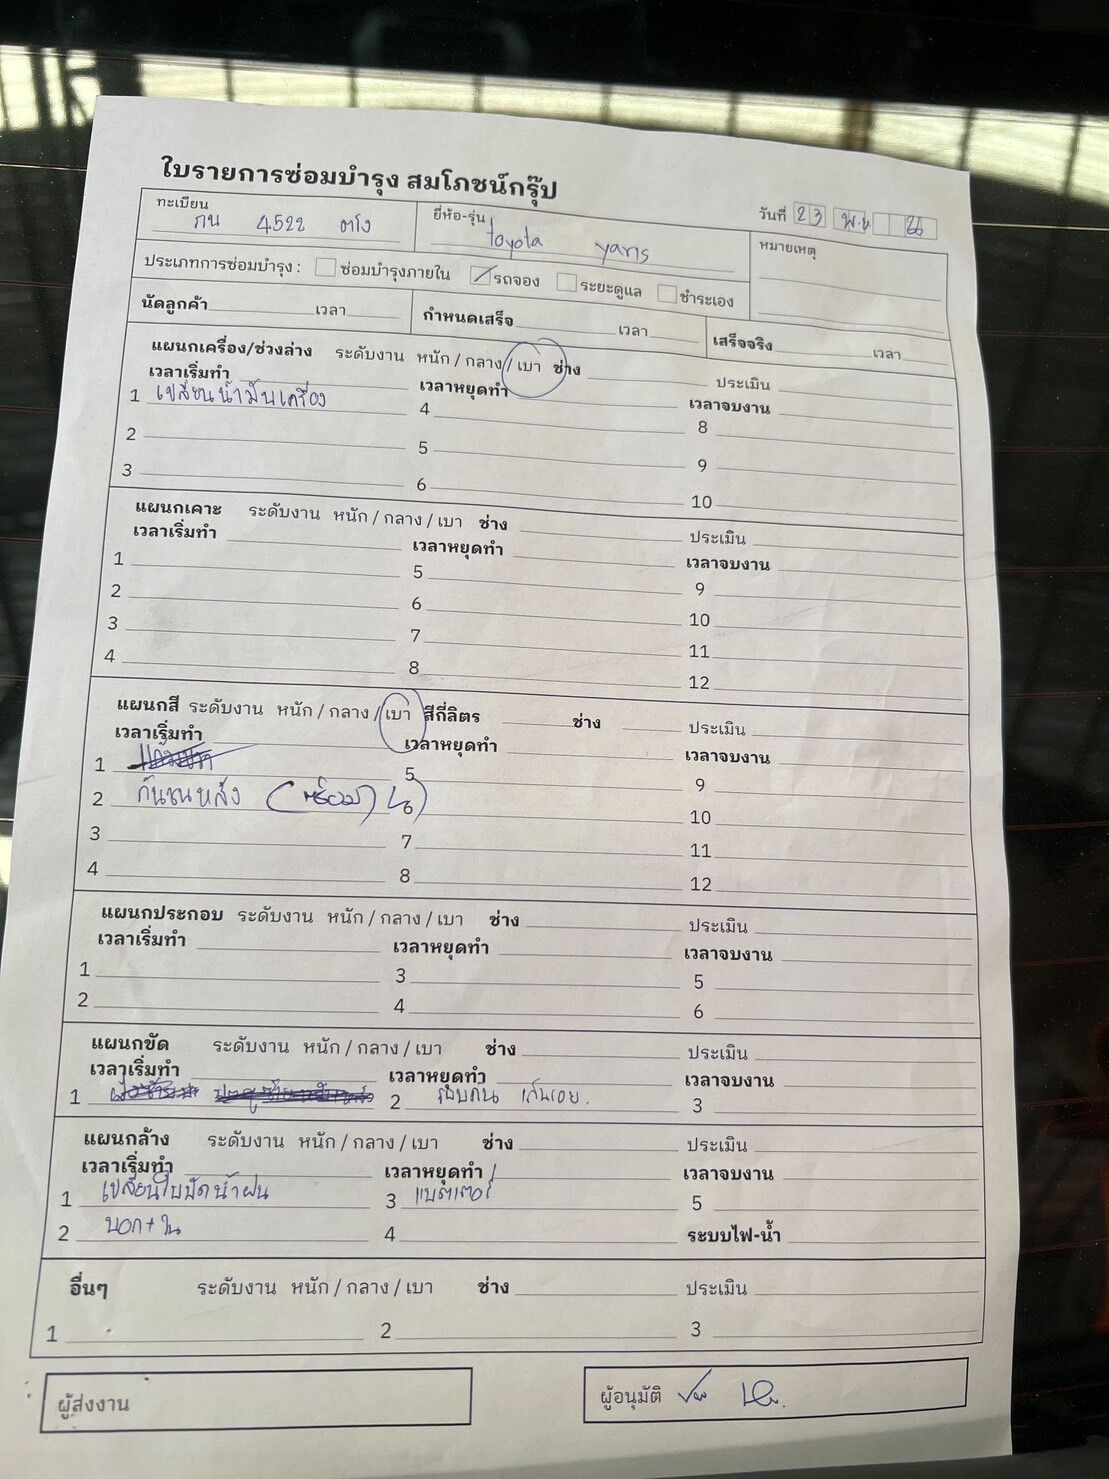 ใบรายการซ่อมบำรุง สมโภชน์กรุ๊ป
วันที่ 23 พ.ย 26
ทะเบียน ยี่ห้อ-รุ่น หมายเหตุ
กน 4522 ตโง toyota yaris
ประเภทการซ่อมบำรุง : ซ่อมบำรุงภายใน รถจอง ระยะดูแล ชำระเอง
นัดลูกค้า เวลา กำหนดเสร็จ เวลา เสร็จจริง เวลา
แผนกเครื่อง/ช่วงล่าง ระดับงาน หนัก / กลาง / เบา ช่าง ประเมิน
เวลาเริ่มทำ เวลาหยุดทำ เวลาจบงาน
1 เปลี่ยนน้ำมันเครื่อง 4 8
2 5 9
3 6 10
แผนกเคาะ ระดับงาน หนัก / กลาง / เบา ช่าง ประเมิน
เวลาเริ่มทำ เวลาหยุดทำ เวลาจบงาน
1 5 9
2 6 10
3 7 11
4 8 12
แผนกสี ระดับงาน หนัก / กลาง / เบา สีกี่ลิตร ช่าง ประเมิน
เวลาเริ่มทำ เวลาหยุดทำ เวลาจบงาน
1 5 9
2 กันชนหลัง 6 10
3 7 11
4 8 12
แผนกประกอบ ระดับงาน หนัก / กลาง / เบา ช่าง ประเมิน
เวลาเริ่มทำ เวลาหยุดทำ เวลาจบงาน
1 3 5
2 4 6
แผนกขัด ระดับงาน หนัก / กลาง / เบา ช่าง ประเมิน
เวลาเริ่มทำ เวลาหยุดทำ เวลาจบงาน
1 2 3
แผนกล้าง ระดับงาน หนัก / กลาง / เบา ช่าง ประเมิน
เวลาเริ่มทำ เวลาหยุดทำ เวลาจบงาน
1 เปลี่ยนใบปัดน้ำฝน 3 แบตเตอรี่ 5
2 นอก+ใน 4 ระบบไฟ-น้ำ
อื่นๆ ระดับงาน หนัก / กลาง / เบา ช่าง ประเมิน
1 2 3
ผู้ส่งงาน ผู้อนุมัติ